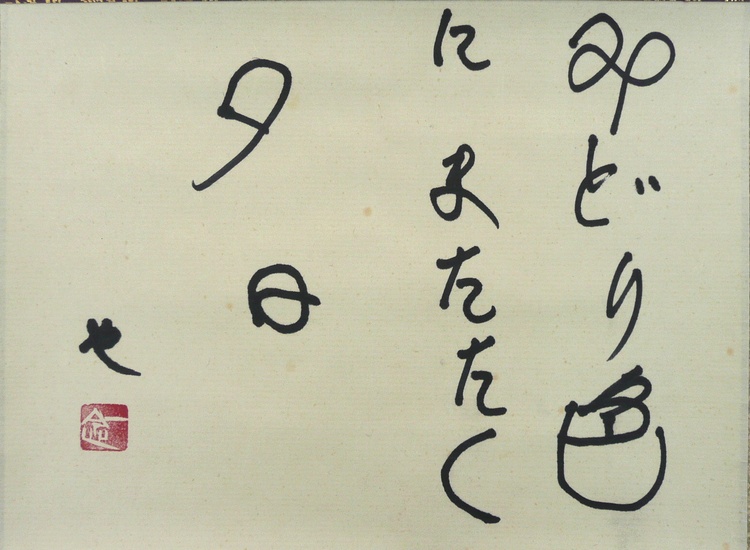 みどり色
にまたたく
夕日
せ